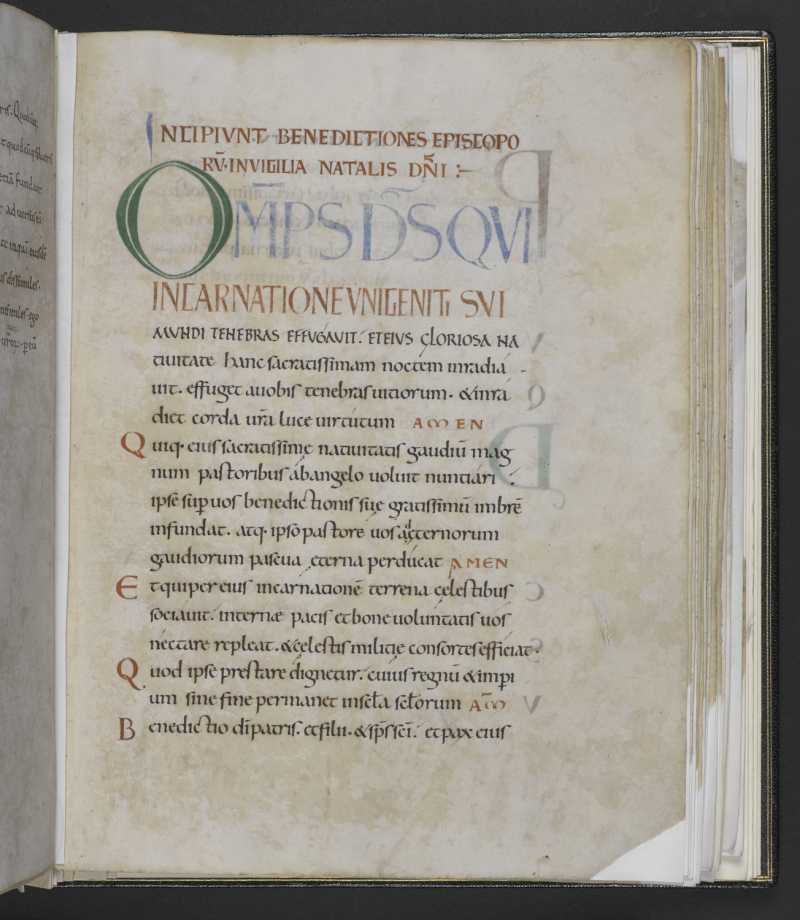 INCIPIUNT BENEDICTIONES EPISCOPO
RŪ·INVIGILIA NATALIS DN̄I :–
OM̄PS D̄S QVI
INCARNATIONE VNIGENITI SVI
MUNDI TENEBRAS EFFUGAUIT. ET EIUS GLORIOSA NA
tiuitate hanc sacratissimam noctem inradia
uit. effuget auobis tenebras uitiorum. &inra
diet corda ur̄a luce uirtutum AMEN
Quiq· eius sacratissimę natiuitatis gaudiū mag
num pastoribus abangelo uoluit nuntiari.
ipse sup uos benedictionis suę gratissimū imbrē
infundat. atq· ipso pastore uos ad ęternorum
gaudiorum pascua ęterna perducat AMEN
Et qui per eius incarnationē terrena cęlestibus
sociauit. internæ pacis et bone uoluntatis uos
nectare repleat. &cęlestis militię consortes efficiat·
Quod ipse prestare dignetur. cuius regnū &imperi
um sine fine permanet insecl̄a secl̄orum AM̄
Benedictio dī patris. et filii. &sps̄ scī. et pax eius